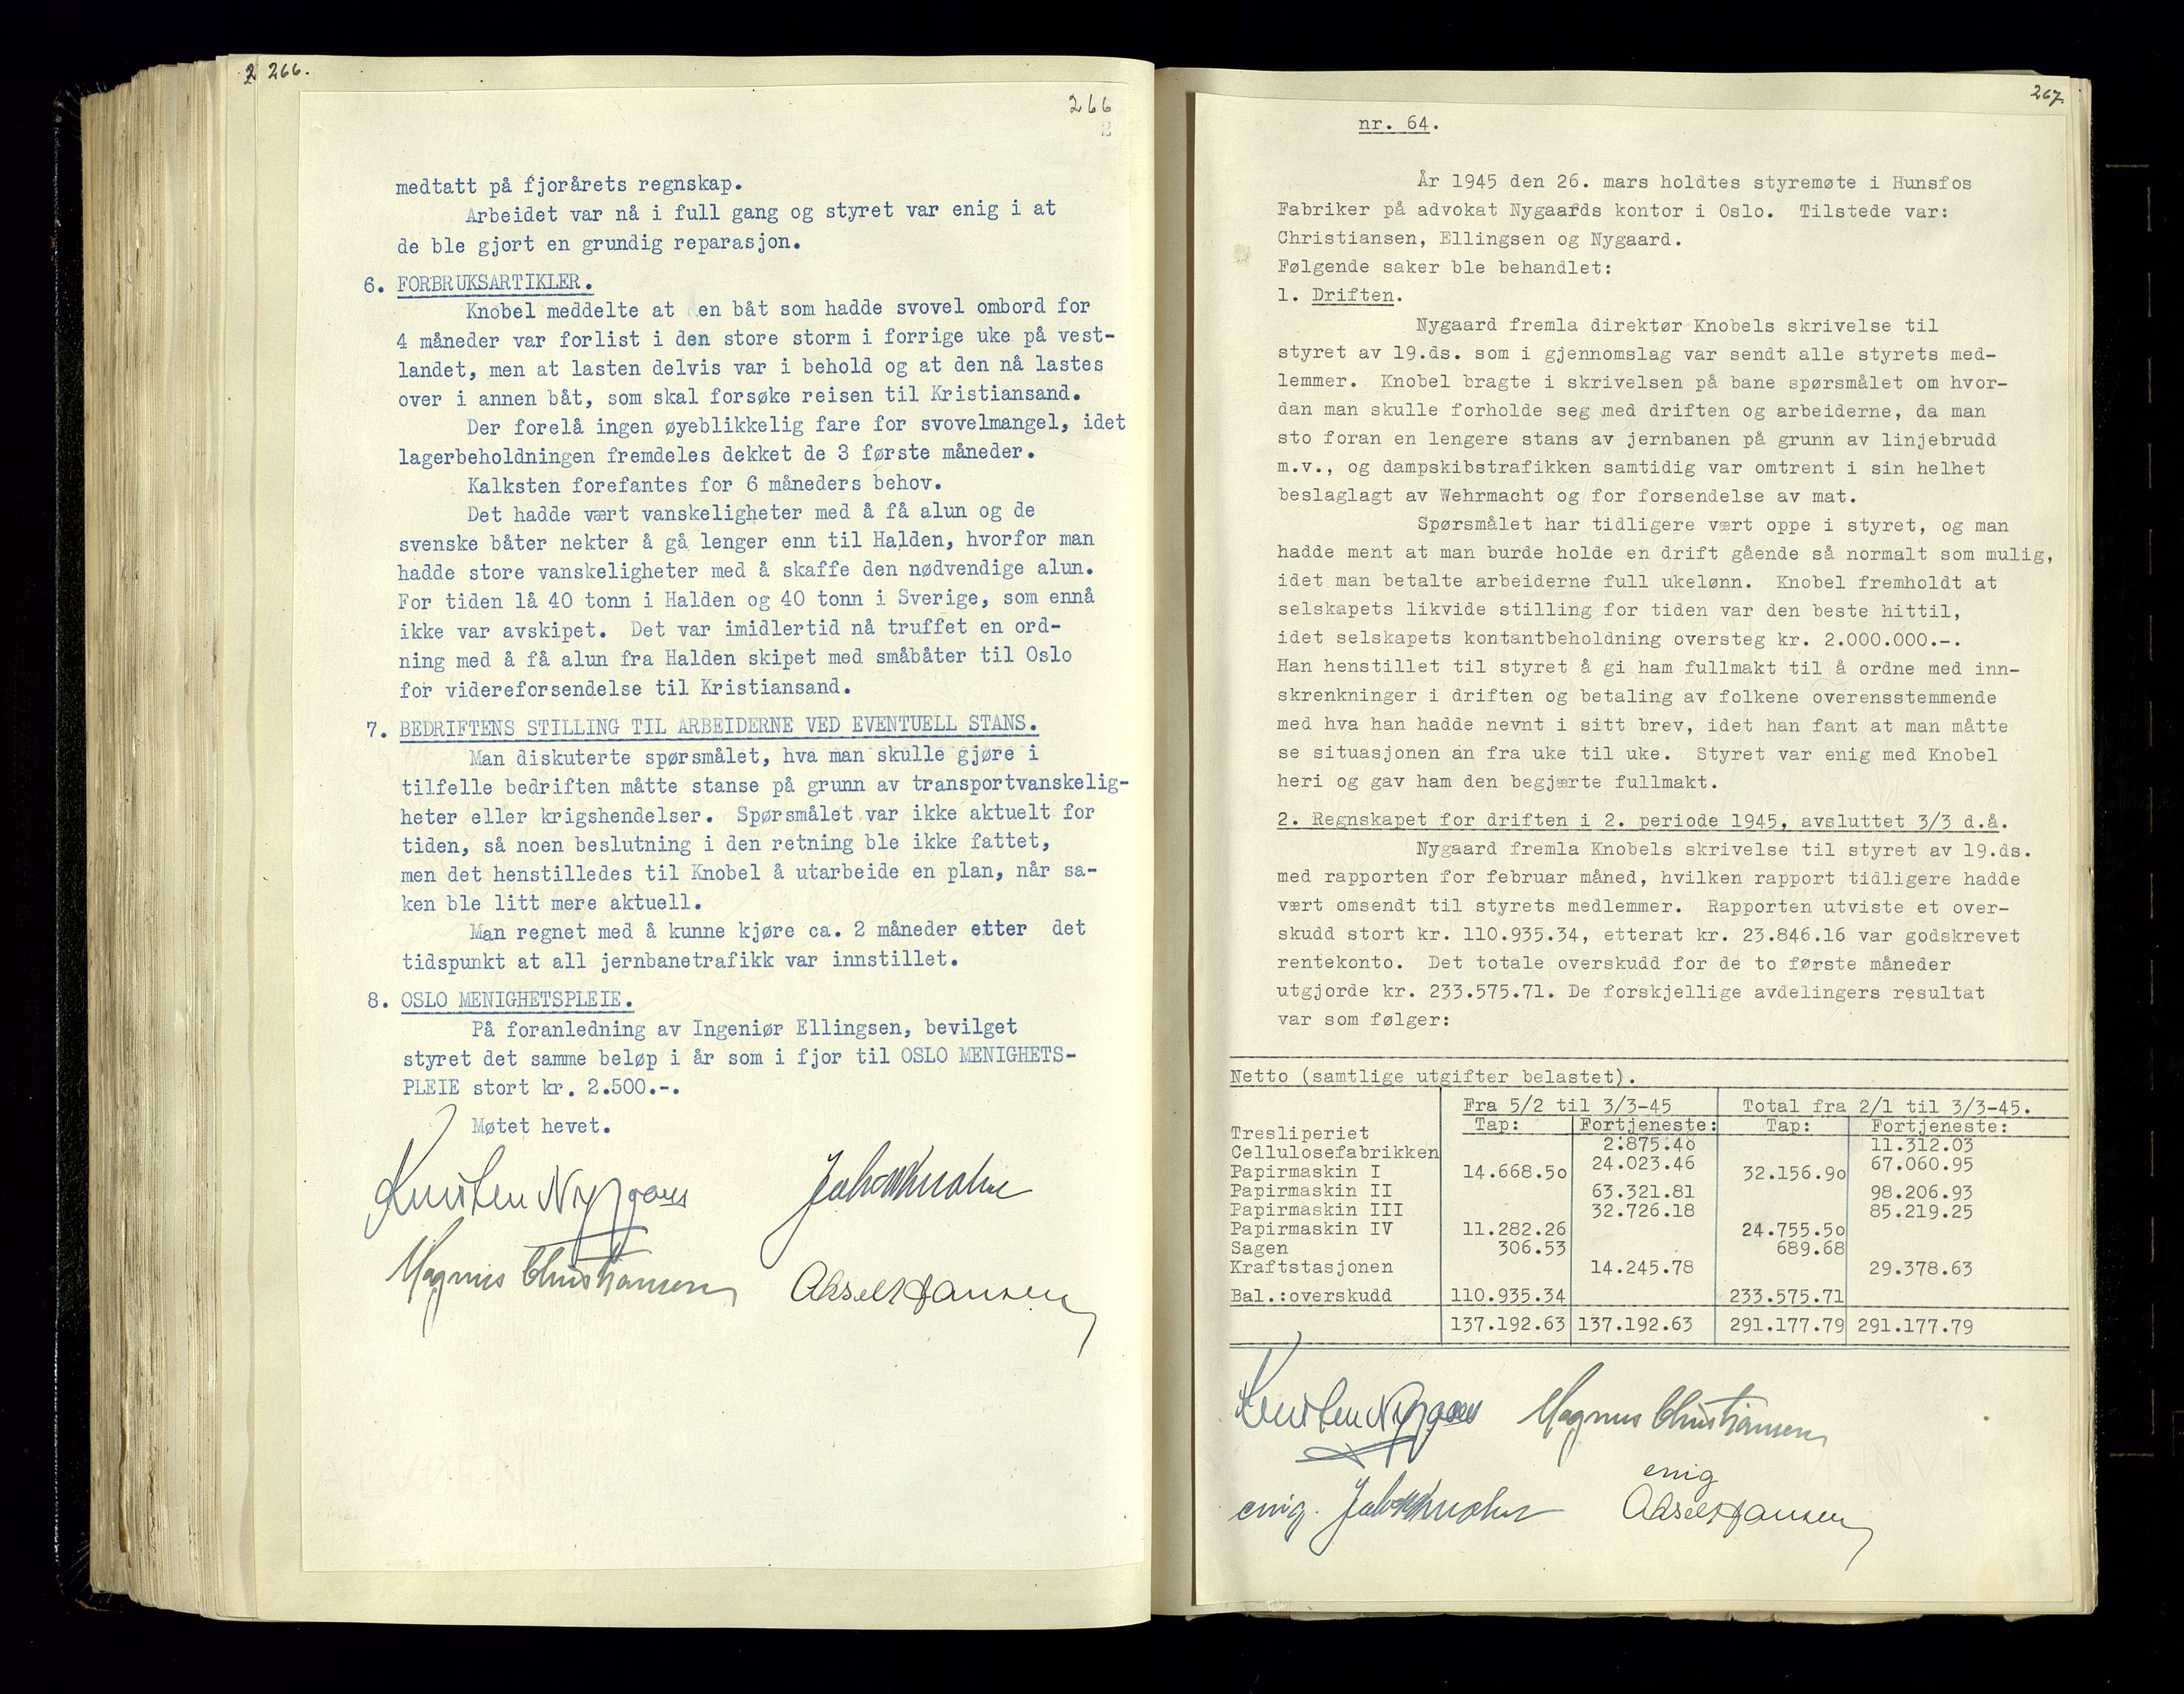 2 266.
266
2
medtatt på fjorårets regnskap.
Arbeidet var nå i full gang og styret var enig i at
de ble gjort en grundig reparasjon.
6. FORBRUKSARTIKLER.
Knobel meddelte at en båt som hadde svovel ombord for
4 måneder var forlist i den store storm i forrige uke på vest-
landet, men at lasten delvis var i behold og at den nå lastes
over i annen båt, som skal forsøke reisen til Kristiansand.
Der forelå ingen øyeblikkelig fare for svovelmangel, idet
lagerbeholdningen fremdeles dekket de 3 første måneder.
Kalksten forefantes for 6 måneders behov.
Det hadde vært vanskeligheter med å få alun og de
svenske båter nekter å gå lenger enn til Halden, hvorfor man
hadde store vanskeligheter med å skaffe den nødvendige alun.
For tiden lå 40 tonn i Halden og 40 tonn i Sverige, som ennå
ikke var avskipet. Det var imidlertid nå truffet en ord-
ning med å få alun fra Halden skipet med småbåter til Oslo
for videreforsendelse til Kristiansand.
7. BEDRIFTENS STILLING TIL ARBEIDERNE VED EVENTUELL STANS.
Man diskuterte spørsmålet, hva man skulle gjøre i
tilfelle bedriften måtte stanse på grunn av transportvanskelig-
heter eller krigshendelser. Spørsmålet var ikke aktuelt for
tiden, så noen beslutning i den retning ble ikke fattet,
men det henstilledes til Knobel å utarbeide en plan, når sa-
ken ble litt mere aktuell.
Man regnet med å kunne kjøre ca. 2 måneder etter det
tidspunkt at all jernbanetrafikk var innstillet.
8. OSLO MENIGHETSPLEIE.
På foranledning av Ingeniør Ellingsen, bevilget
styret det samme beløp i år som i fjor til OSLO MENIGHETS-
PLEIE stort kr. 2.500.-.
Møtet hevet.
Magnus Christiansen
Aksel Hansen
267.
nr. 64.
År 1945 den 26. mars holdtes styremøte i Hunsfos
Fabriker på advokat Nygaards kontor i Oslo. Tilstede var:
Christiansen, Ellingsen og Nygaard.
Følgende saker ble behandlet:
1. Driften.
Nygaard fremla direktør Knobels skrivelse til
styret av 19.ds. som i gjennomslag var sendt alle styrets med-
lemmer. Knobel bragte i skrivelsen på bane spørsmålet om hvor-
dan man skulle forholde seg med driften og arbeiderne, da man
sto foran en lengere stans av jernbanen på grunn av linjebrudd
m.v., og dampskibstrafikken samtidig var omtrent i sin helhet
beslaglagt av Wehrmacht og for forsendelse av mat.
Spørsmålet har tidligere vært oppe i styret, og man
hadde ment at man burde holde en drift gående så normalt som mulig,
idet man betalte arbeiderne full ukelønn. Knobel fremholdt at
selskapets likvide stilling for tiden var den beste hittil,
idet selskapets kontantbeholdning oversteg kr. 2.000.000.-.
Han henstillet til styret å gi ham fullmakt til å ordne med inn-
skrenkninger i driften og betaling av folkene overensstemmende
med hva han hadde nevnt i sitt brev, idet han fant at man måtte
se situasjonen an fra uke til uke. Styret var enig med Knobel
heri og gav ham den begjærte fullmakt.
2. Regnskapet for driften i 2. periode 1945, avsluttet 3/3 d.å.
Nygaard fremla Knobels skrivelse til styret av 19.ds.
med rapporten for februar måned, hvilken rapport tidligere hadde
vært omsendt til styrets medlemmer. Rapporten utviste et over-
skudd stort kr. 110.935.34, etterat kr. 23.846.16 var godskrevet
rentekonto. Det totale overskudd for de to første måneder
utgjorde kr. 233.575.71. De forskjellige avdelingers resultat
var som følger:
Netto (samtlige utgifter belastet).
Fra 5/2 til 3/3-45 Total fra 2/1 til 3/3-45.
Tap: Fortjeneste: Tap: Fortjeneste:
Tresliperiet 2.875.40 11.312.03
Cellulosefabrikken 24.023.46 67.060.95
Papirmaskin I 14.668.50 32.156.90
Papirmaskin II 63.321.81 98.206.93
Papirmaskin III 32.726.18 85.219.25
Papirmaskin IV 11.282.26 24.755.50
Sagen 306.53 689.68
Kraftstasjonen 14.245.78 29.378.63
Bal.:overskudd 110.935.34 233.575.71
137.192.63 137.192.63 291.177.79 291.177.79
Magnus Christiansen
enig
enig.
Aksel Hansen